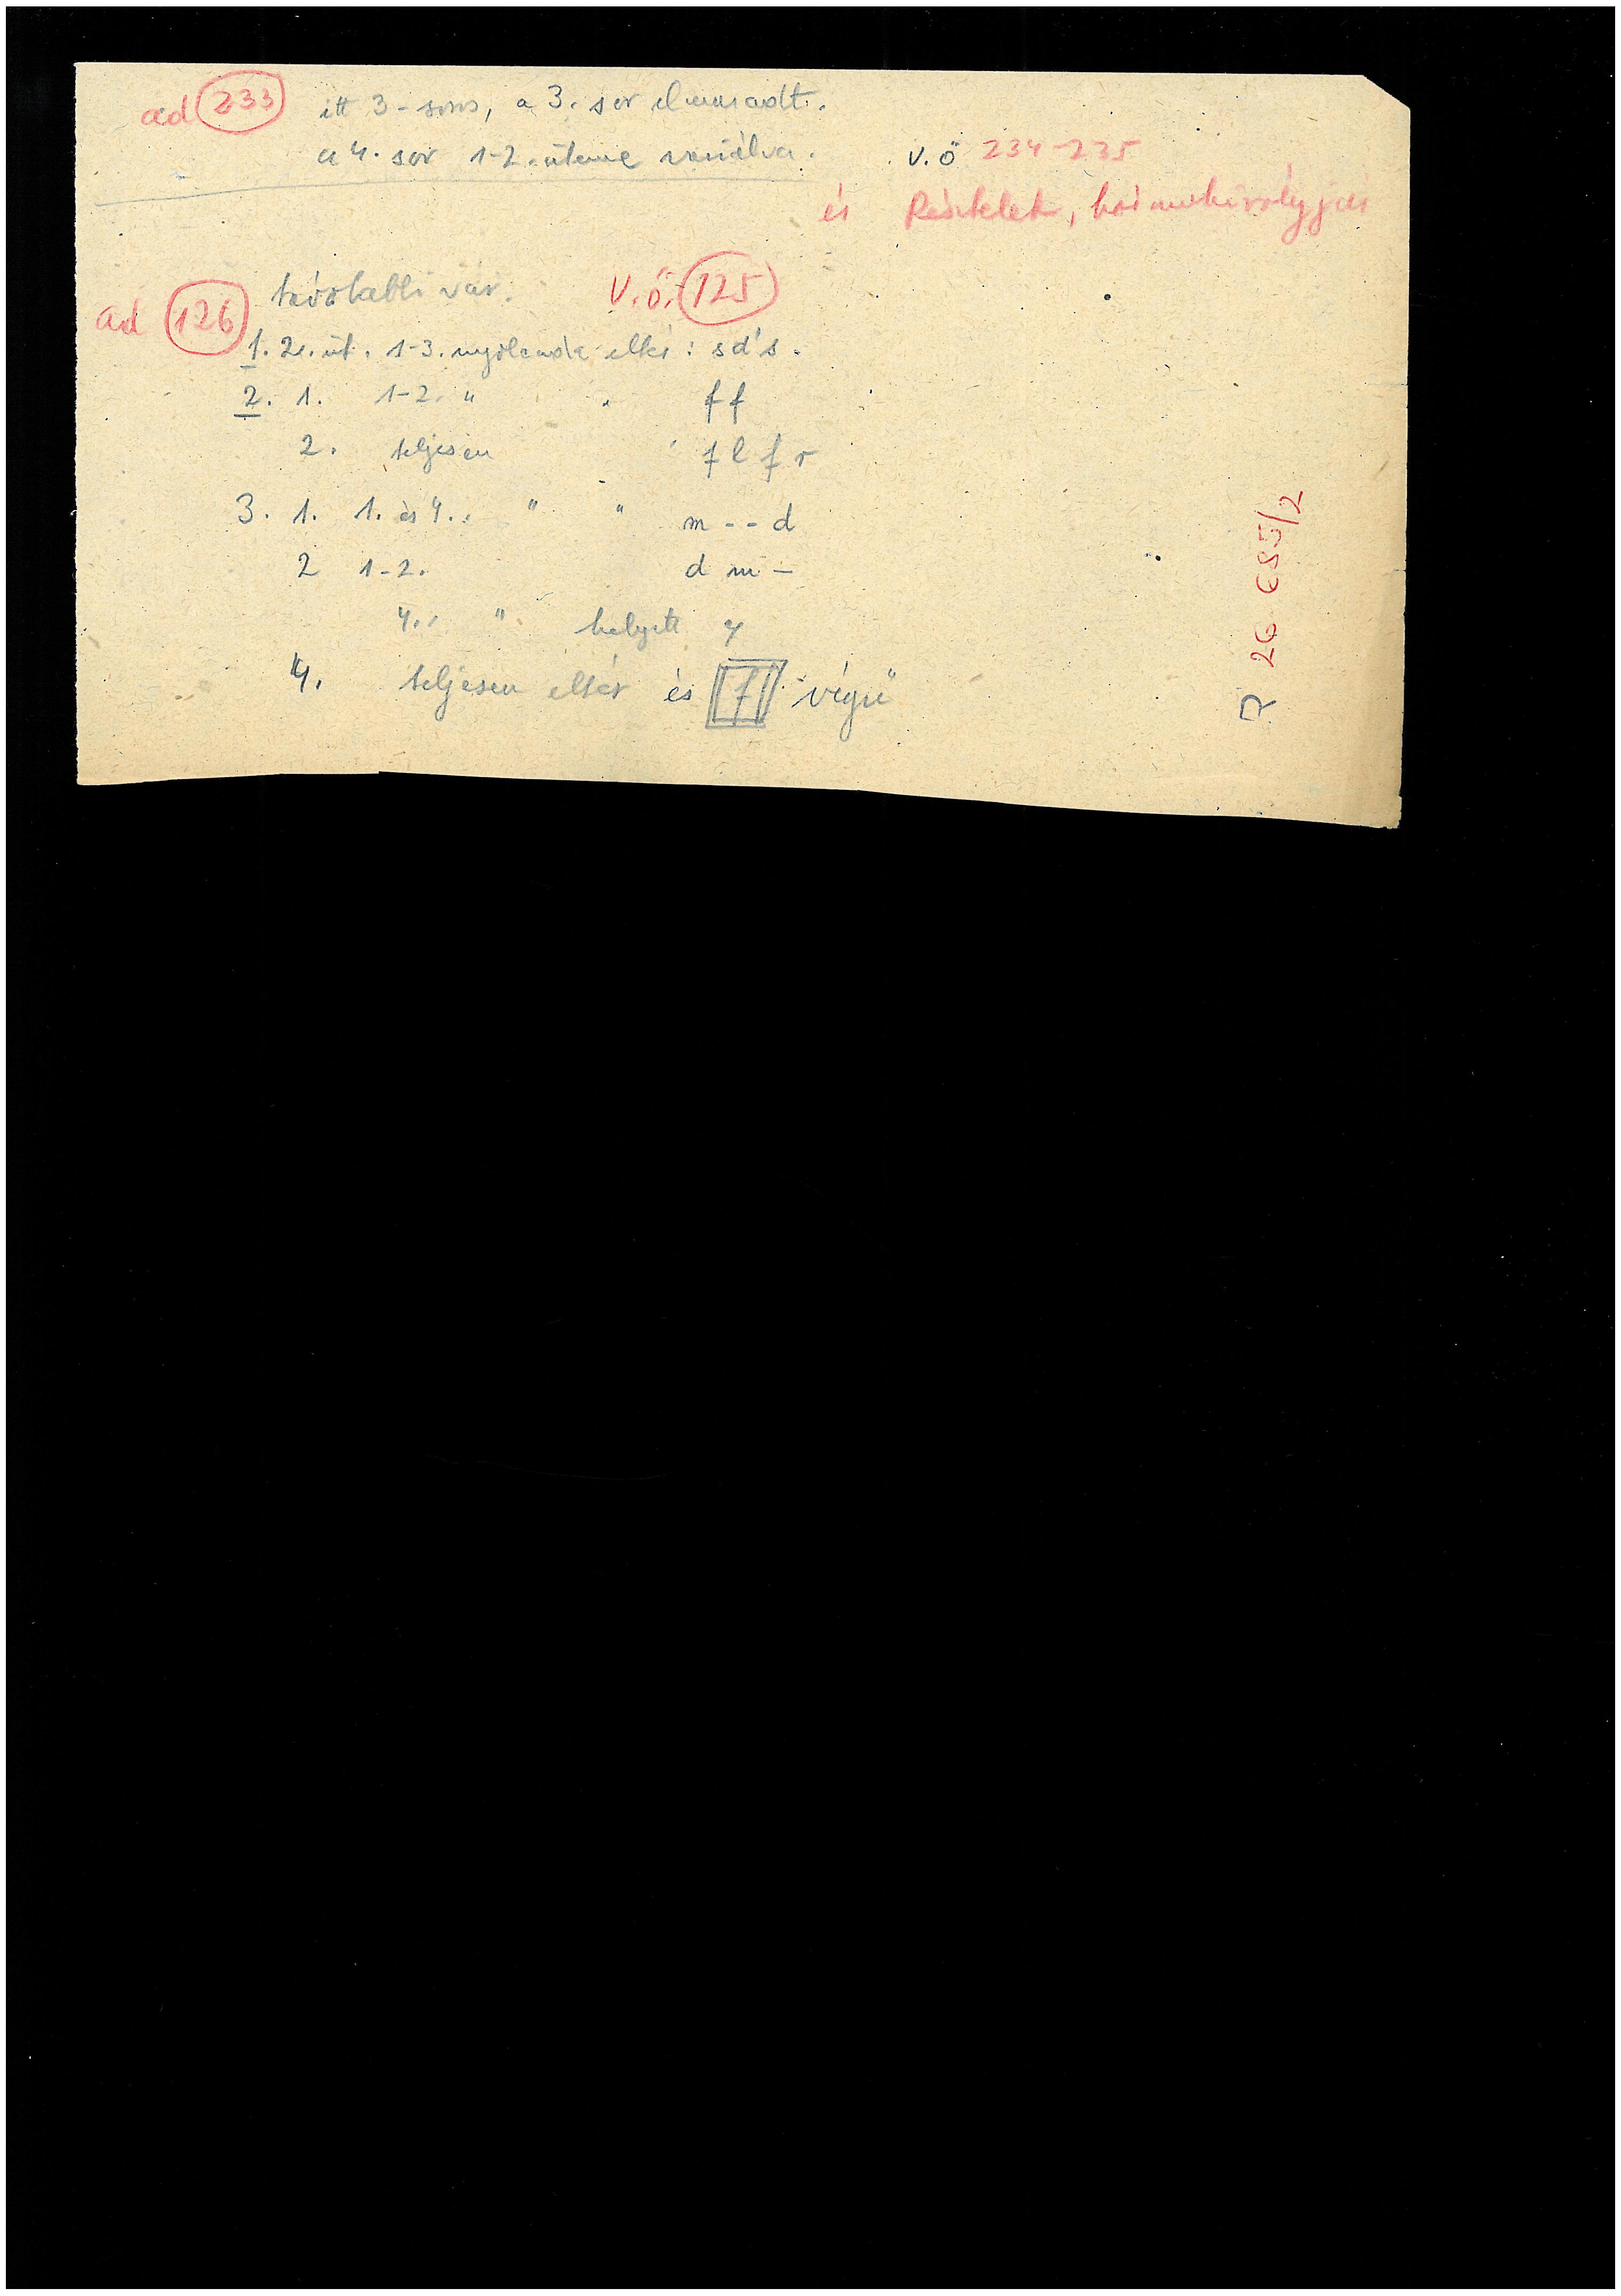 ad 233 itt 3-soros, a 3. sor elmaradt.
a 4. sor 1-2. üteme variálva. v.ö 234-235
és Részletek,
ad 126 távolabbi var. V.ö. 125
1. 2. üt. 1-3. nyolcada eltér: s d' s.
2. 1. 1-2. " " f f
2. teljesen " f l f r
3. 1. 1. és 4. " " m - - d
2 1-2. d m -
4. " helyett
4. teljesen eltér és f végű
R 26 685/2